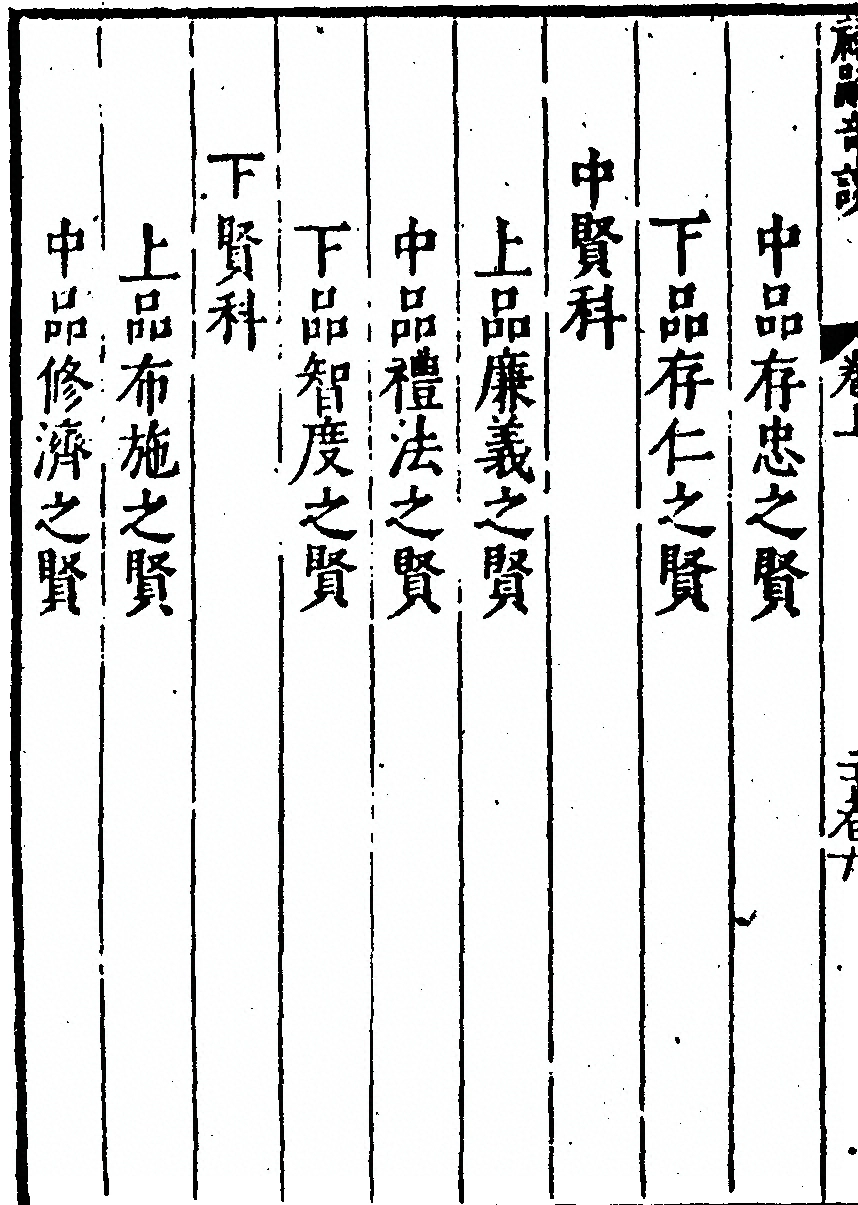 卷上
中品存忠之賢
下品存仁之賢
中賢科
上品廉義之賢
中品禮法之賢
下品智度之賢
下賢科
上品布施之賢
中品修濟之賢